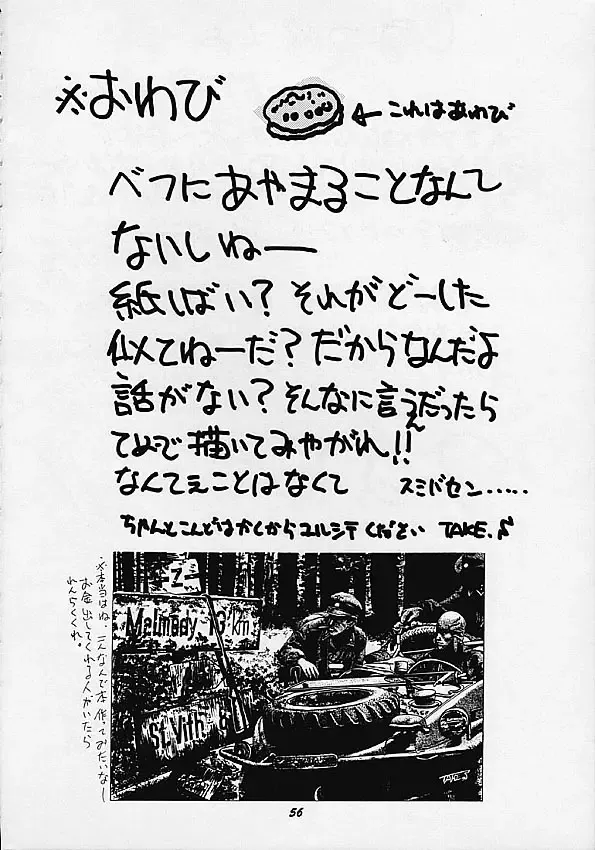 ※おわび
←これはあわび
べつにあやまることなんて
ないしねー
紙しばい?それがどーした
似てねーだ?だからなんだよ
話がない?そんなに言うんだったら
てめーで描いてみやがれ!!
なんてぇことはなくて スミバセン……
ちゃんとこんどはかくからユルシテください TAKE.S
※本当はね、こんなんで本作ってみたいなー
お金出してくれる人がいたら
れんらくくれ。
Z
Malmedy 13 km
St.Vith 8
TAKE.S
56